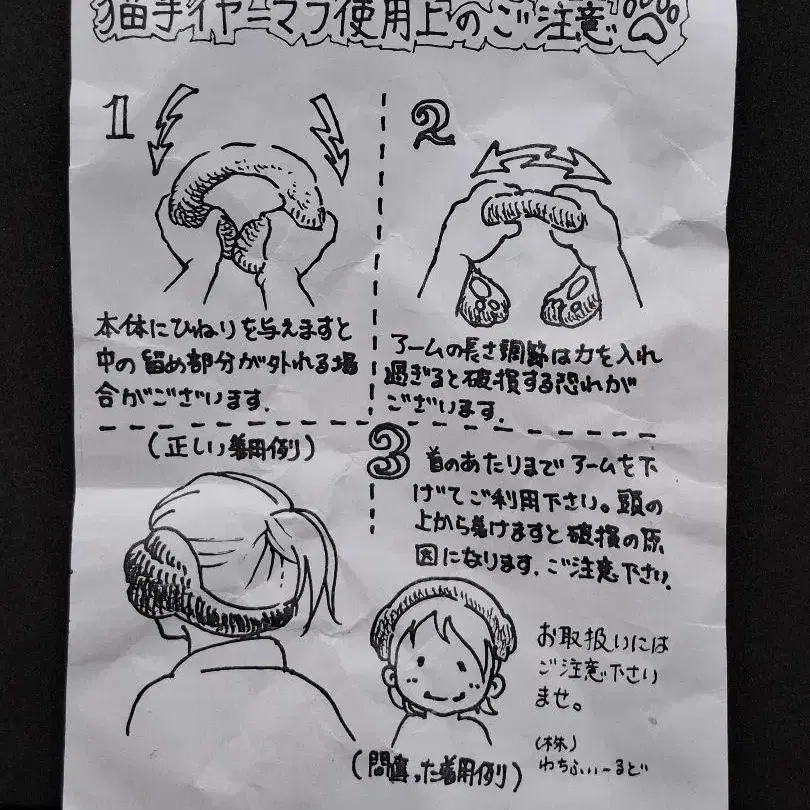 猫手イヤーマフ使用上のご注意
1
本体にひねりを与えますと
中の留め部分が外れる場
合がございます.
2
アームの長さ調節は力を入れ
過ぎると破損する恐れが
ございます.
(正しい着用例)
3
首のあたりまでアームを下
げてご利用下さい。頭の
上から着けますと破損の原
因になります.ご注意下さい.
(間違った着用例)
お取扱いには
ご注意下さい
ませ。
(株)
わちふぃーるど